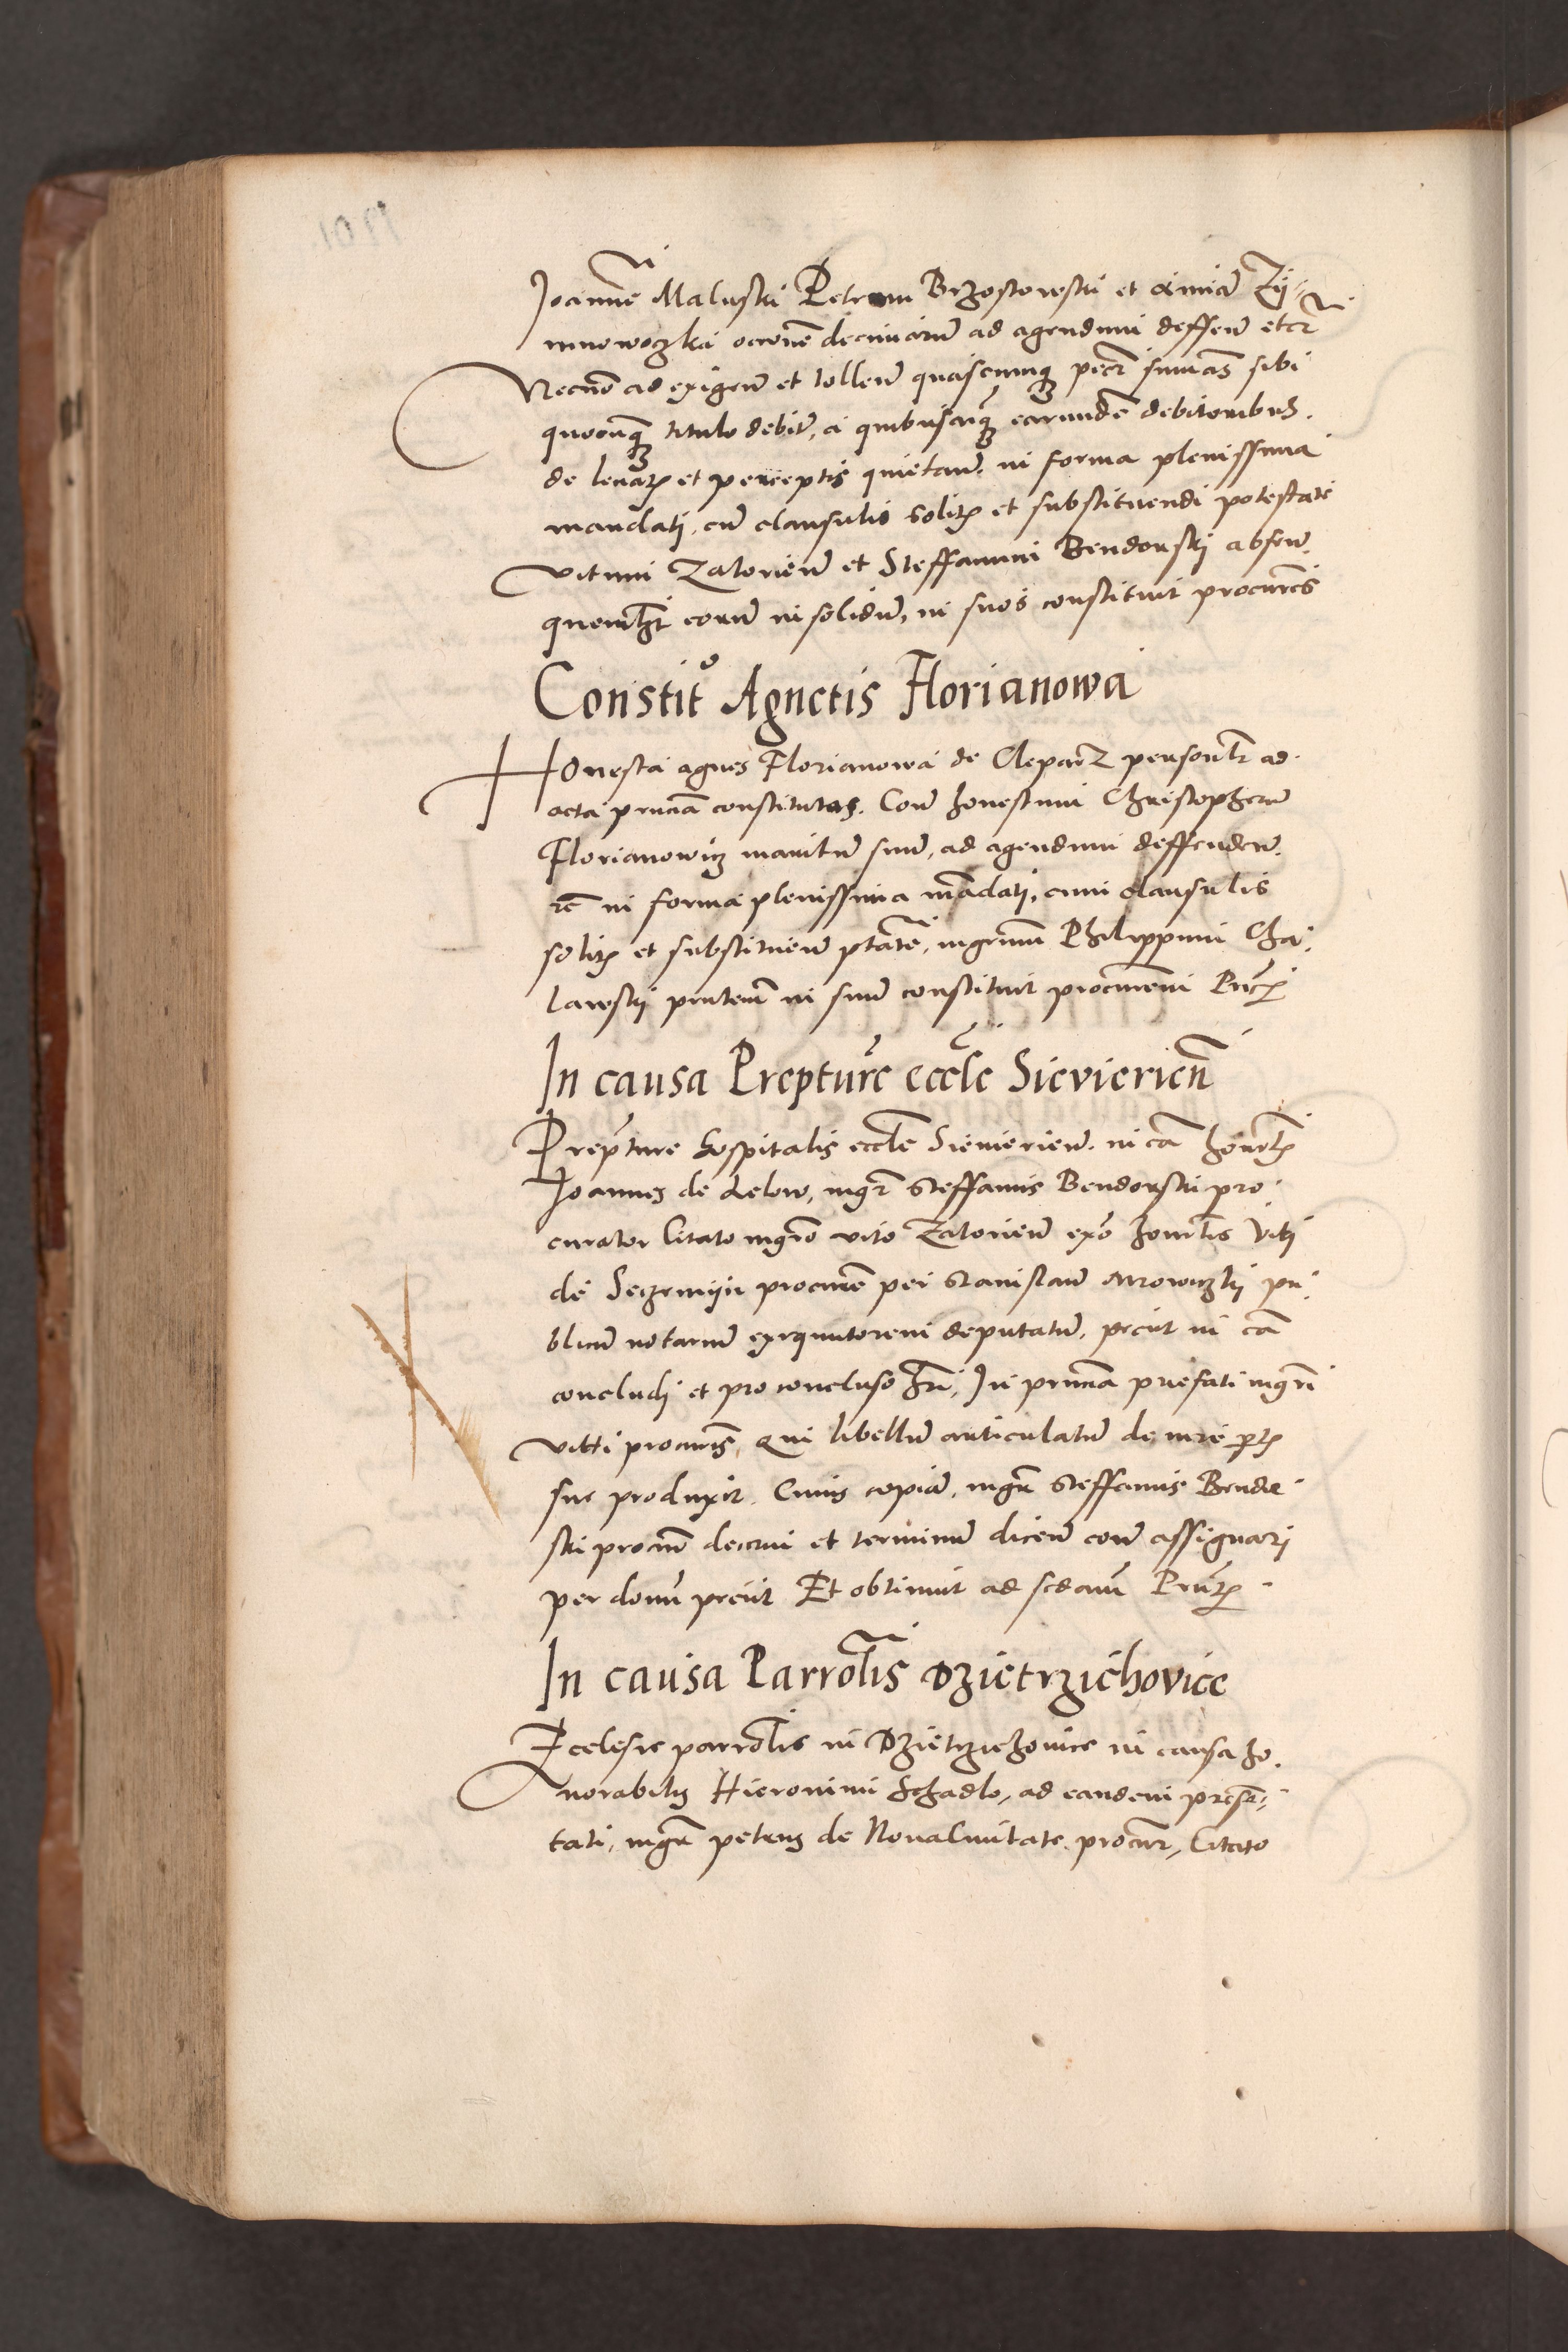 Joannē Maluski Petrum Brzostowski et annā Zy-
mnowoczka occōne decimarū ad agendum deffēn etcr̄
Necnō ad exigēn et tollēn quascumqʒ pecr̄ sum̄as sibi
quocūqʒ titulo debit̄, a quibuscūqʒ earundē debitoribus.
de leuatꝭ et perceptis quietan̄. in forma plenissima
mandati, cū clausulis solitꝭ et substituendi potestate
vitum Zatorien̄ et Steffanum Bendorski absen̄.
quemlȝt eorū in solidū, in suos constituit procur̄es
Constit° Agnetis Florianowa
Honesta agnes Florianowa de Clepar̄z personlr̄ ad
acta pn̄cia constituta. Corā honestum Christopherū
Florianowicz maritū suū, ad agendum deffenden̄.
rē in forma plenissima mādati, cum clausulis
solitꝭ et substituēn ptatē, mgrum Philippum Cha-
lawski pn̄tem in suū constituit procurem Pn̄tꝭ
In causa Prepturē eccle Sievierien̄
Prepture hospitalis eccle Sieuierien̄. in cā honorlꝭ
Joannes de Lelow, mgr̄ Steffanus Bendorski pro-
curator Citato mgro vito Zatorien̄ exō honorlis Viti
de Seczemyn procure per Stanislaū Mrowiczki pu-
blicū notariū exequutorem deputatū, peciit in cā
concludi et pro concluso hri, In pn̄cia prefati mgri
vitti procuris, Qui libellū articulatū de iure ptꝭ
sue produxit. Cuius copiā, mgr̄ Steffanus Bendor-
ski procur̄ decerni et terminū dicen̄ con̄ assignari
per domū peciit Et obtinuit ad scdam̄ Pn̄tꝭ
In causa Parrolis Dzietrzichovice
Ecclesie parrolis in Dzietrzichovice in causa ho-
norabilis Hieronimi Schadlo, ad eandem presen-
tati, mgr̄ petrus de Noua Ciuitate procur̄, Citato